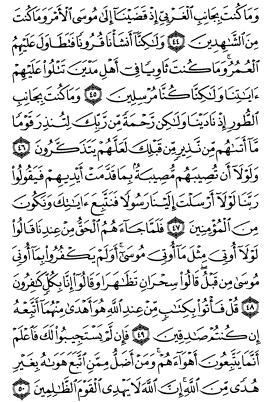 وَمَا كُنتَ بِجَانِبِ ٱلْغَرْبِيِّ إِذْ قَضَيْنَآ إِلَىٰ مُوسَى ٱلْأَمْرَ وَمَا كُنتَ
مِنَ ٱلشَّٰهِدِينَ ٤٤ وَلَٰكِنَّآ أَنشَأْنَا قُرُونًا فَتَطَاوَلَ عَلَيْهِمُ
ٱلْعُمُرُ وَمَا كُنتَ ثَاوِيًا فِىٓ أَهْلِ مَدْيَنَ تَتْلُوا۟ عَلَيْهِمْ
ءَايَٰتِنَا وَلَٰكِنَّا كُنَّا مُرْسِلِينَ ٤٥ وَمَا كُنتَ بِجَانِبِ
ٱلطُّورِ إِذْ نَادَيْنَا وَلَٰكِن رَّحْمَةً مِّن رَّبِّكَ لِتُنذِرَ قَوْمًا
مَّآ أَتَىٰهُم مِّن نَّذِيرٍ مِّن قَبْلِكَ لَعَلَّهُمْ يَتَذَكَّرُونَ ٤٦
وَلَوْلَآ أَن تُصِيبَهُم مُّصِيبَةٌۢ بِمَا قَدَّمَتْ أَيْدِيهِمْ فَيَقُولُوا۟
رَبَّنَا لَوْلَآ أَرْسَلْتَ إِلَيْنَا رَسُولًا فَنَتَّبِعَ ءَايَٰتِكَ وَنَكُونَ
مِنَ ٱلْمُؤْمِنِينَ ٤٧ فَلَمَّا جَآءَهُمُ ٱلْحَقُّ مِنْ عِندِنَا قَالُوا۟
لَوْلَآ أُوتِىَ مِثْلَ مَآ أُوتِىَ مُوسَىٰٓ أَوَلَمْ يَكْفُرُوا۟ بِمَآ أُوتِىَ
مُوسَىٰ مِن قَبْلُ قَالُوا۟ سِحْرَانِ تَظَٰهَرَا وَقَالُوٓا۟ إِنَّا بِكُلٍّ كَٰفِرُونَ
٤٨ قُلْ فَأْتُوا۟ بِكِتَٰبٍ مِّنْ عِندِ ٱللَّهِ هُوَ أَهْدَىٰ مِنْهُمَآ أَتَّبِعْهُ
إِن كُنتُمْ صَٰدِقِينَ ٤٩ فَإِن لَّمْ يَسْتَجِيبُوا۟ لَكَ فَٱعْلَمْ
أَنَّمَا يَتَّبِعُونَ أَهْوَآءَهُمْ وَمَنْ أَضَلُّ مِمَّنِ ٱتَّبَعَ هَوَىٰهُ بِغَيْرِ
هُدًى مِّنَ ٱللَّهِ إِنَّ ٱللَّهَ لَا يَهْدِى ٱلْقَوْمَ ٱلظَّٰلِمِينَ ٥٠